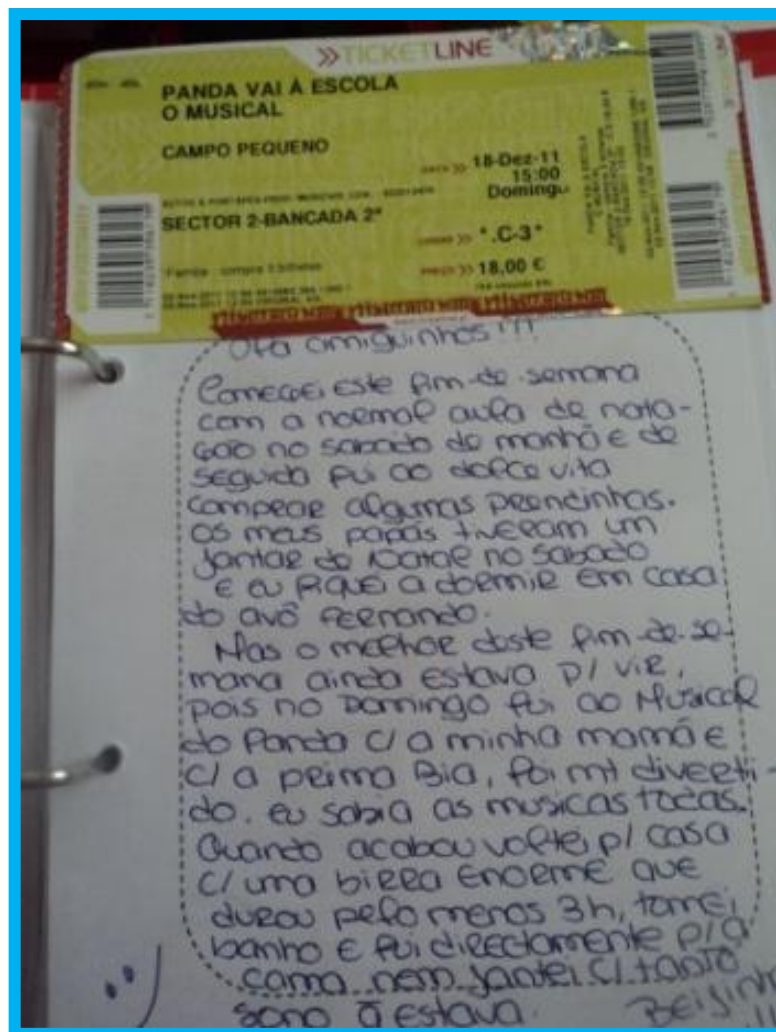 TICKETLINE
PANDA VAI À ESCOLA
O MUSICAL
CAMPO PEQUENO
DATA >> 18-Dez-11
15:00
Domingo
SECTOR 2-BANCADA 2ª
*.C-3*
PREÇO >> 18,00 €
Olá amiguinhos!!!
Comecei este fim-de-semana
com a normal aula de nata-
ção no sabado de manhã e de
seguida fui ao dolce vita
comprar algumas prendinhas.
Os meus papás tiveram um
jantar de Natal no sabado
e eu fiquei a dormir em casa
do avô Fernando.
Mas o melhor deste fim-de-se-
mana ainda estava p/ vir,
pois no Domingo fui ao Musical
do Panda c/ a minha mamã e
c/ a prima Bia, foi mt diverti-
do. eu sabia as musicas todas.
Quando acabou voltei p/ casa
c/ uma birra enorme que
durou pelo menos 3h, tomei
banho e fui directamente p/ a
cama nem jantei c/ tanto
sono q estava.